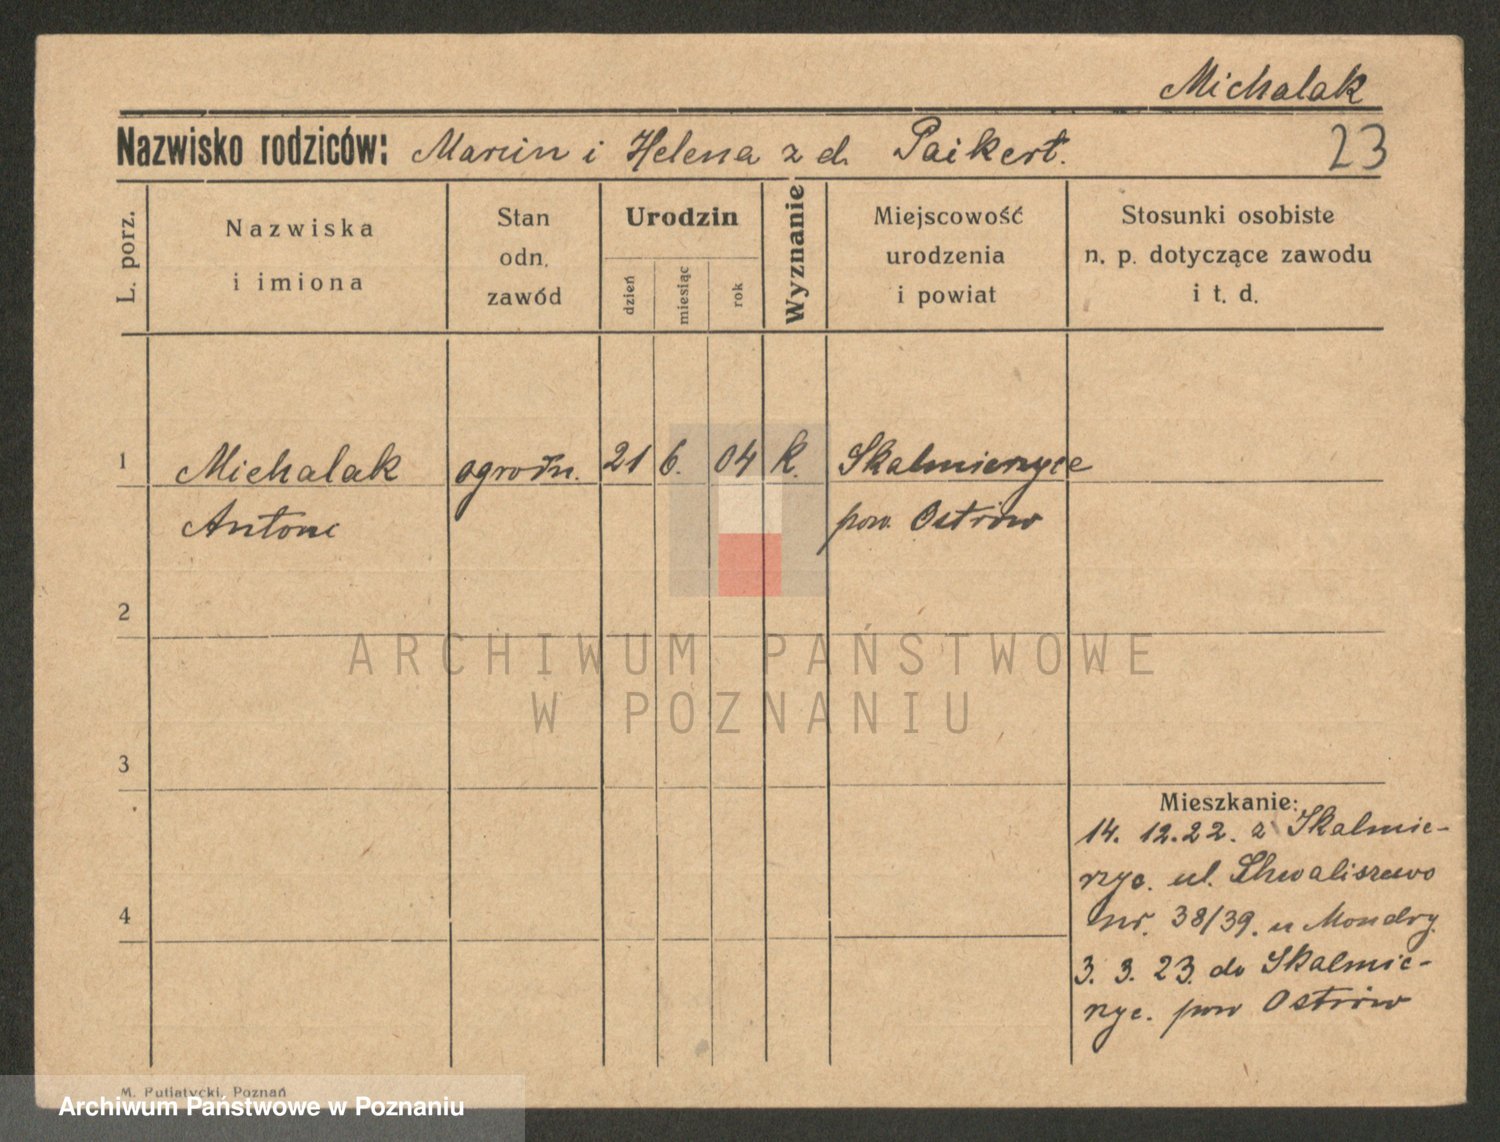 Michalak
Nazwisko rodziców: Marcin i Helena z d. Paikert.
23
L. porz.
Nazwiska
i imiona
Stan
odn.
zawód
Urodzin
dzień
miesiąc
rok
Wyznanie
Miejscowość
urodzenia
i powiat
Stosunki osobiste
n. p. dotyczące zawodu
i t. d.
1
Michalak ogrodn. 21 6. 04 k. Skalmierzyce
Antoni pow. Ostrów
2
ARCHIWUM PAŃSTWOWE
W POZNANIU
3
Mieszkanie:
14. 12.22. z Skalmie-
rzyc. ul. Chwaliszewo
4
nr. 38/39. u Mondry.
3. 3. 23. do Skalmie-
rzyc. pow Ostrów
M. Putiatycki, Poznań
Archiwum Państwowe w Poznaniu